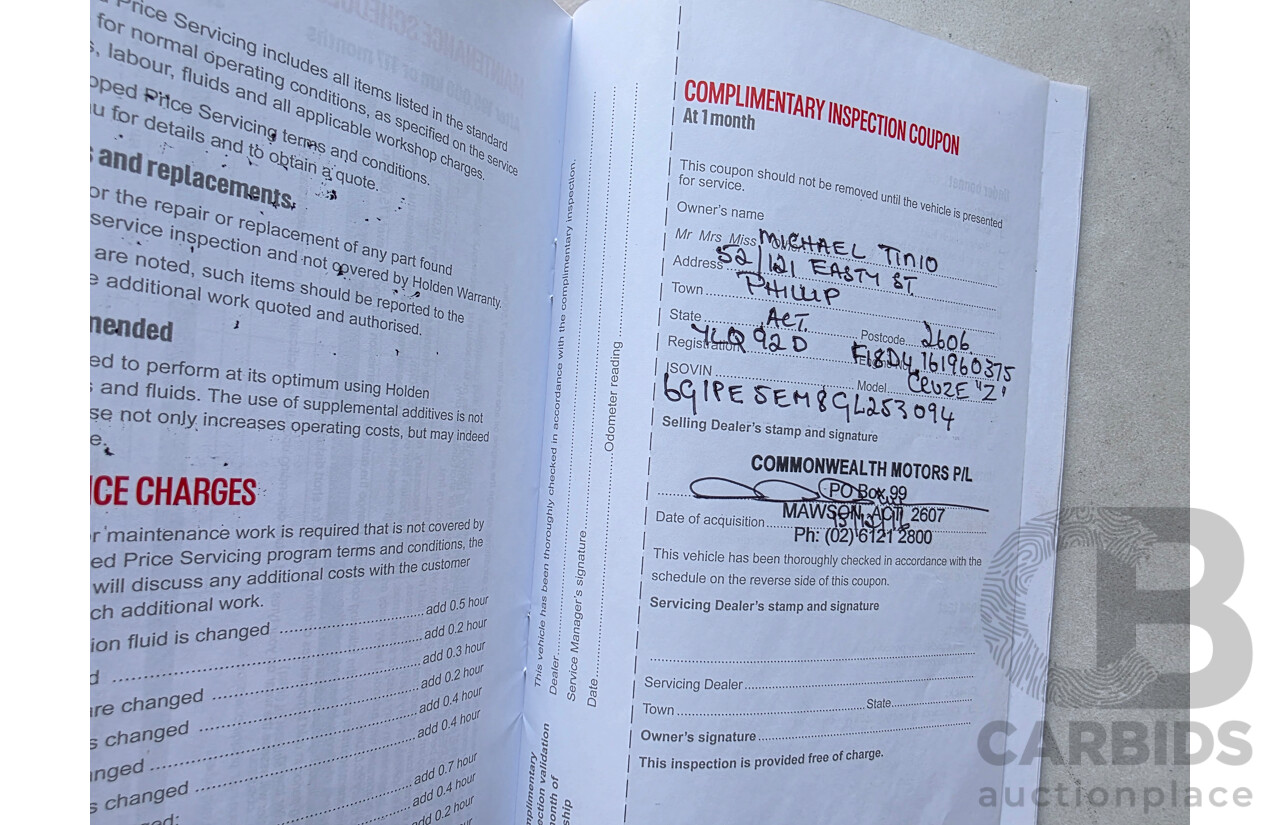 Price Servicing includes all items listed in the standard
for normal operating conditions, as specified on the service
, labour, fluids and all applicable workshop charges.
pped Price Servicing terms and conditions.
u for details and to obtain a quote.
and replacements
or the repair or replacement of any part found
service inspection and not covered by Holden Warranty.
are noted, such items should be reported to the
e additional work quoted and authorised.
mended
ed to perform at its optimum using Holden
and fluids. The use of supplemental additives is not
se not only increases operating costs, but may indeed
e.
ICE CHARGES
r maintenance work is required that is not covered by
ed Price Servicing program terms and conditions, the
will discuss any additional costs with the customer
ch additional work.
ion fluid is changed add 0.5 hour
d add 0.2 hour
are changed add 0.3 hour
s changed add 0.2 hour
nged add 0.4 hour
s changed add 0.4 hour
ged: add 0.7 hour
add 0.4 hour
add 0.2 hour
This vehicle has been thoroughly checked in accordance with the complimentary inspection.
Dealer
Service Manager's signature
Date Odometer reading
mplimentary
ection validation
month of
ship
COMPLIMENTARY INSPECTION COUPON
At 1 month
This coupon should not be removed until the vehicle is presented
for service.
Owner's name
Mr Mrs Miss MICHAEL TINIO
Address 52/121 EASTY ST.
Town PHILLIP
State ACT. Postcode 2606
Registration YLQ 92D F18D4,161960375
ISOVIN Model CRUZE "Z"
6G1PE5EM8GL253094
Selling Dealer's stamp and signature
COMMONWEALTH MOTORS P/L
PO Box 99
MAWSON ACT 2607
Date of acquisition
Ph: (02) 6121 2800
This vehicle has been thoroughly checked in accordance with the
schedule on the reverse side of this coupon.
Servicing Dealer's stamp and signature
Servicing Dealer
Town State
Owner's signature
This inspection is provided free of charge.
CARBIDS
auctionplace